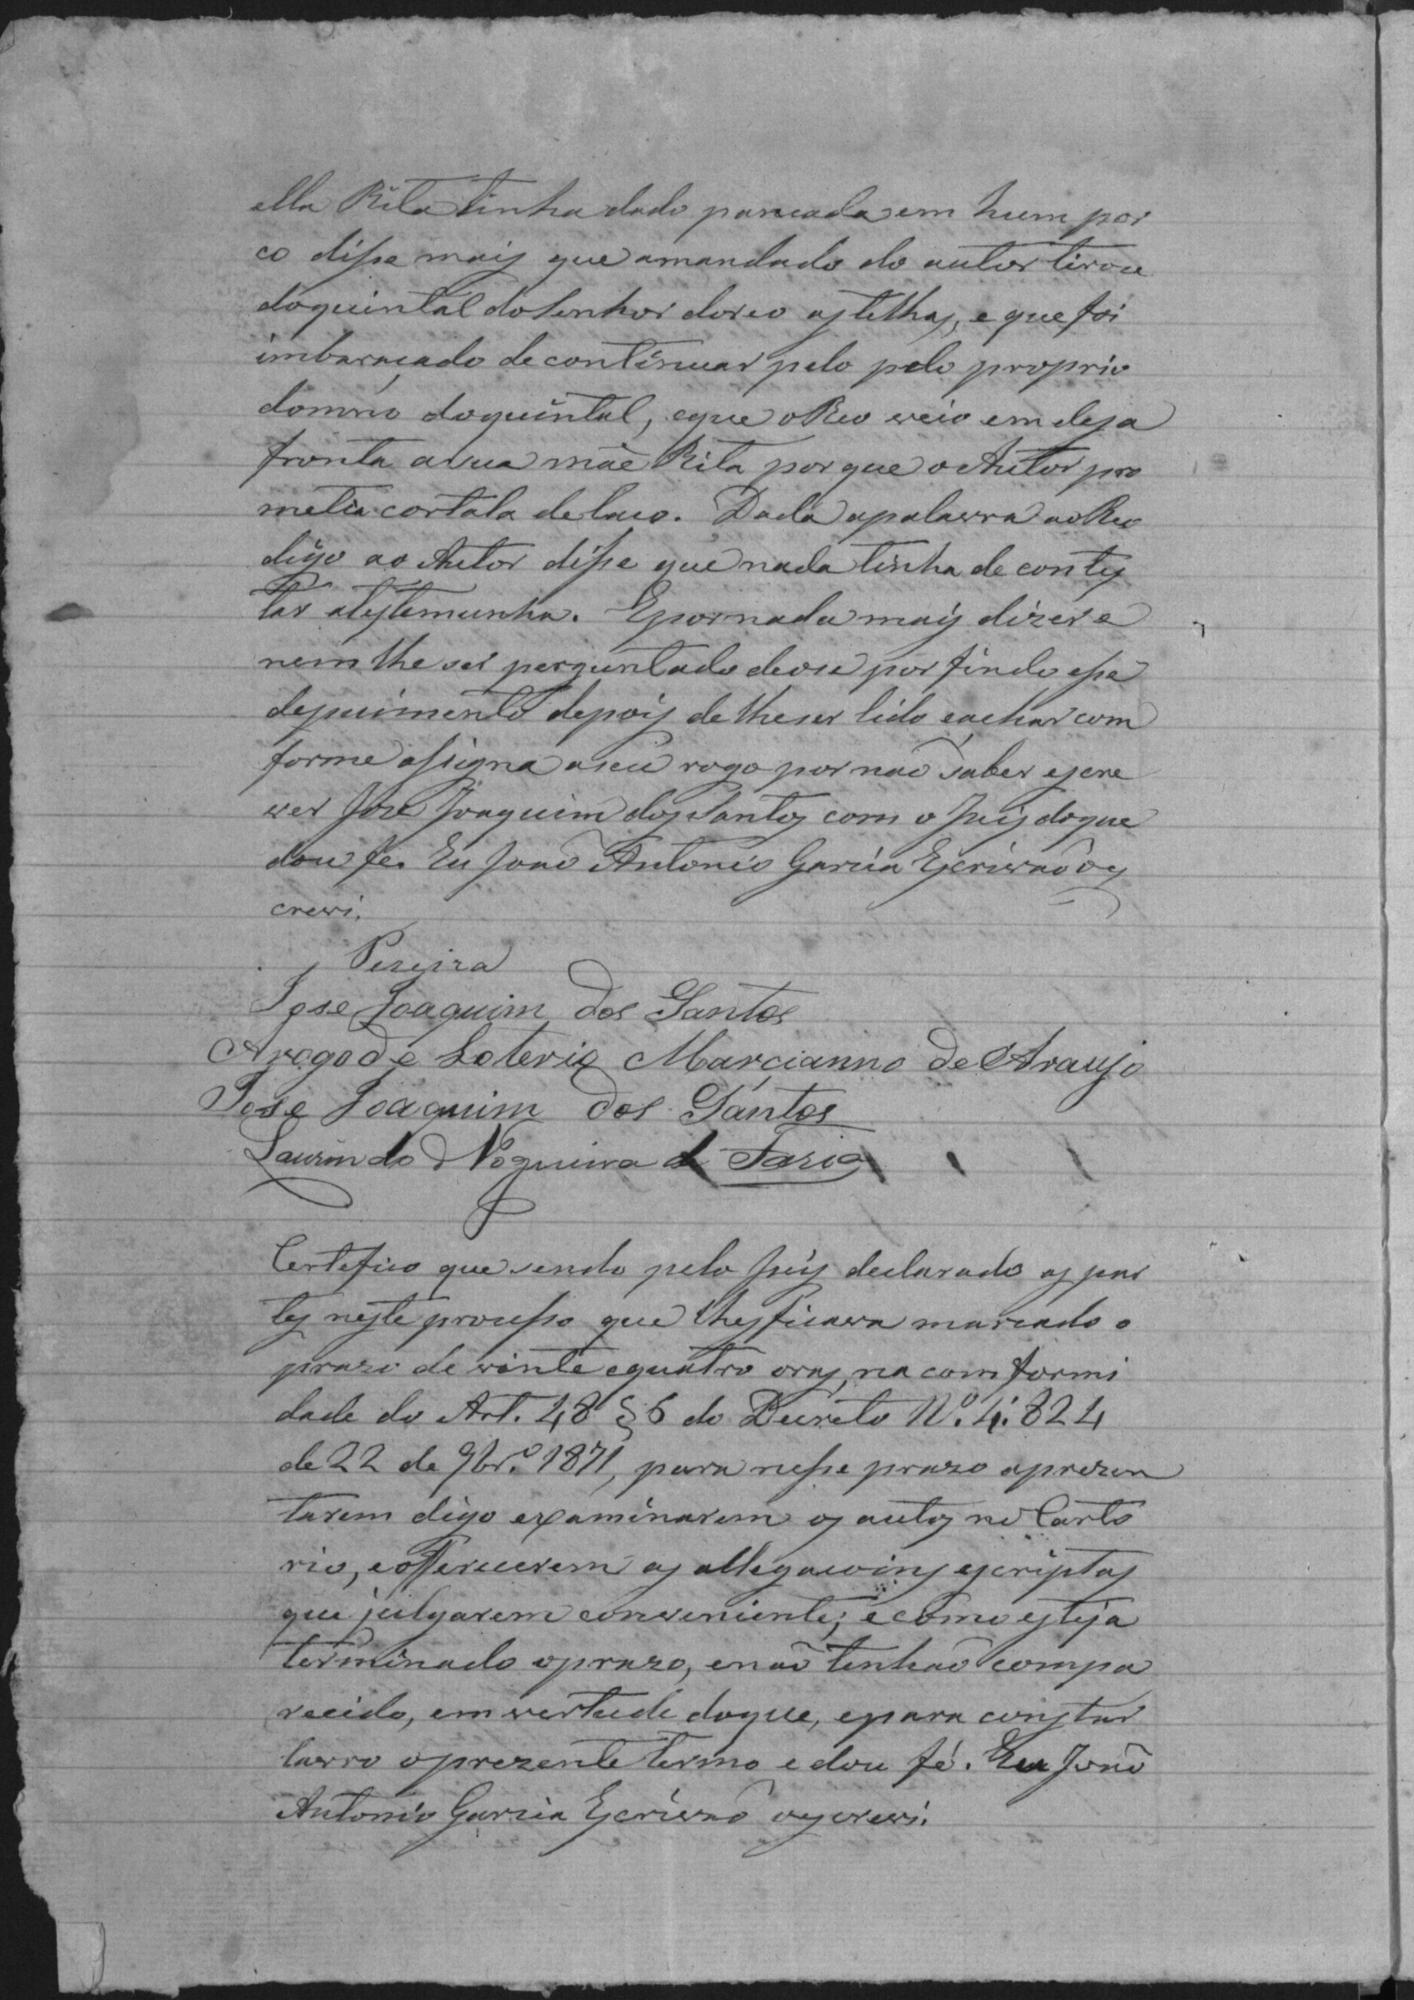 ella Rita tinha dado pancada em hum por
co disse mais que amandado do autor tirou
doquintal doSenhor doreo as telhas, e que foi
imbaraçado de continuar pelo pelo proprio
domno doquintal, eque oReo veio em desa
fronta asua mãe Rita por que o Autor pro
metia cortala de laço. Dada apalavra ao Reo
digo ao Autor disse que nada tinha de contes
tar atestemunha. Epornada mais dizer e
nem lhe ser perguntado deose por findo esse
depuimento depois de lheser lido eachar com
forme assigna aseu rogo por não saber escre
ver Jose Joaquim dos Santos com o Juis doque
dou fe. Eu João Antonio Garcia Escrivão oes
crevi.
Pereira
Jose Joaquim dos Santos
Arogo de Loterio Marcianno de Araujo
Jose Joaquim dos Santos
Laurindo Nogueira de Faria
Certefico que sendo pelo Juis declarado as par
tes neste processo que lhes ficava marcado o
prazo de vinte equatro oras, na com formi
dade do Art. 48 § 6 do Decreto Nº. 4.824
de 22 de 9br.º 1871, para nesse prazo aprezen
tarem digo examinarem os autos no Carto
rio, e offerecerem as allegacoins escriptas
que julgarem conveniente; e como esteja
terminado oprazo, enão tenhão compa
recido, em vertude doque, epara constar
lavro oprezente termo e dou fé. Eu João
Antonio Garcia Escrivão oescrevi.